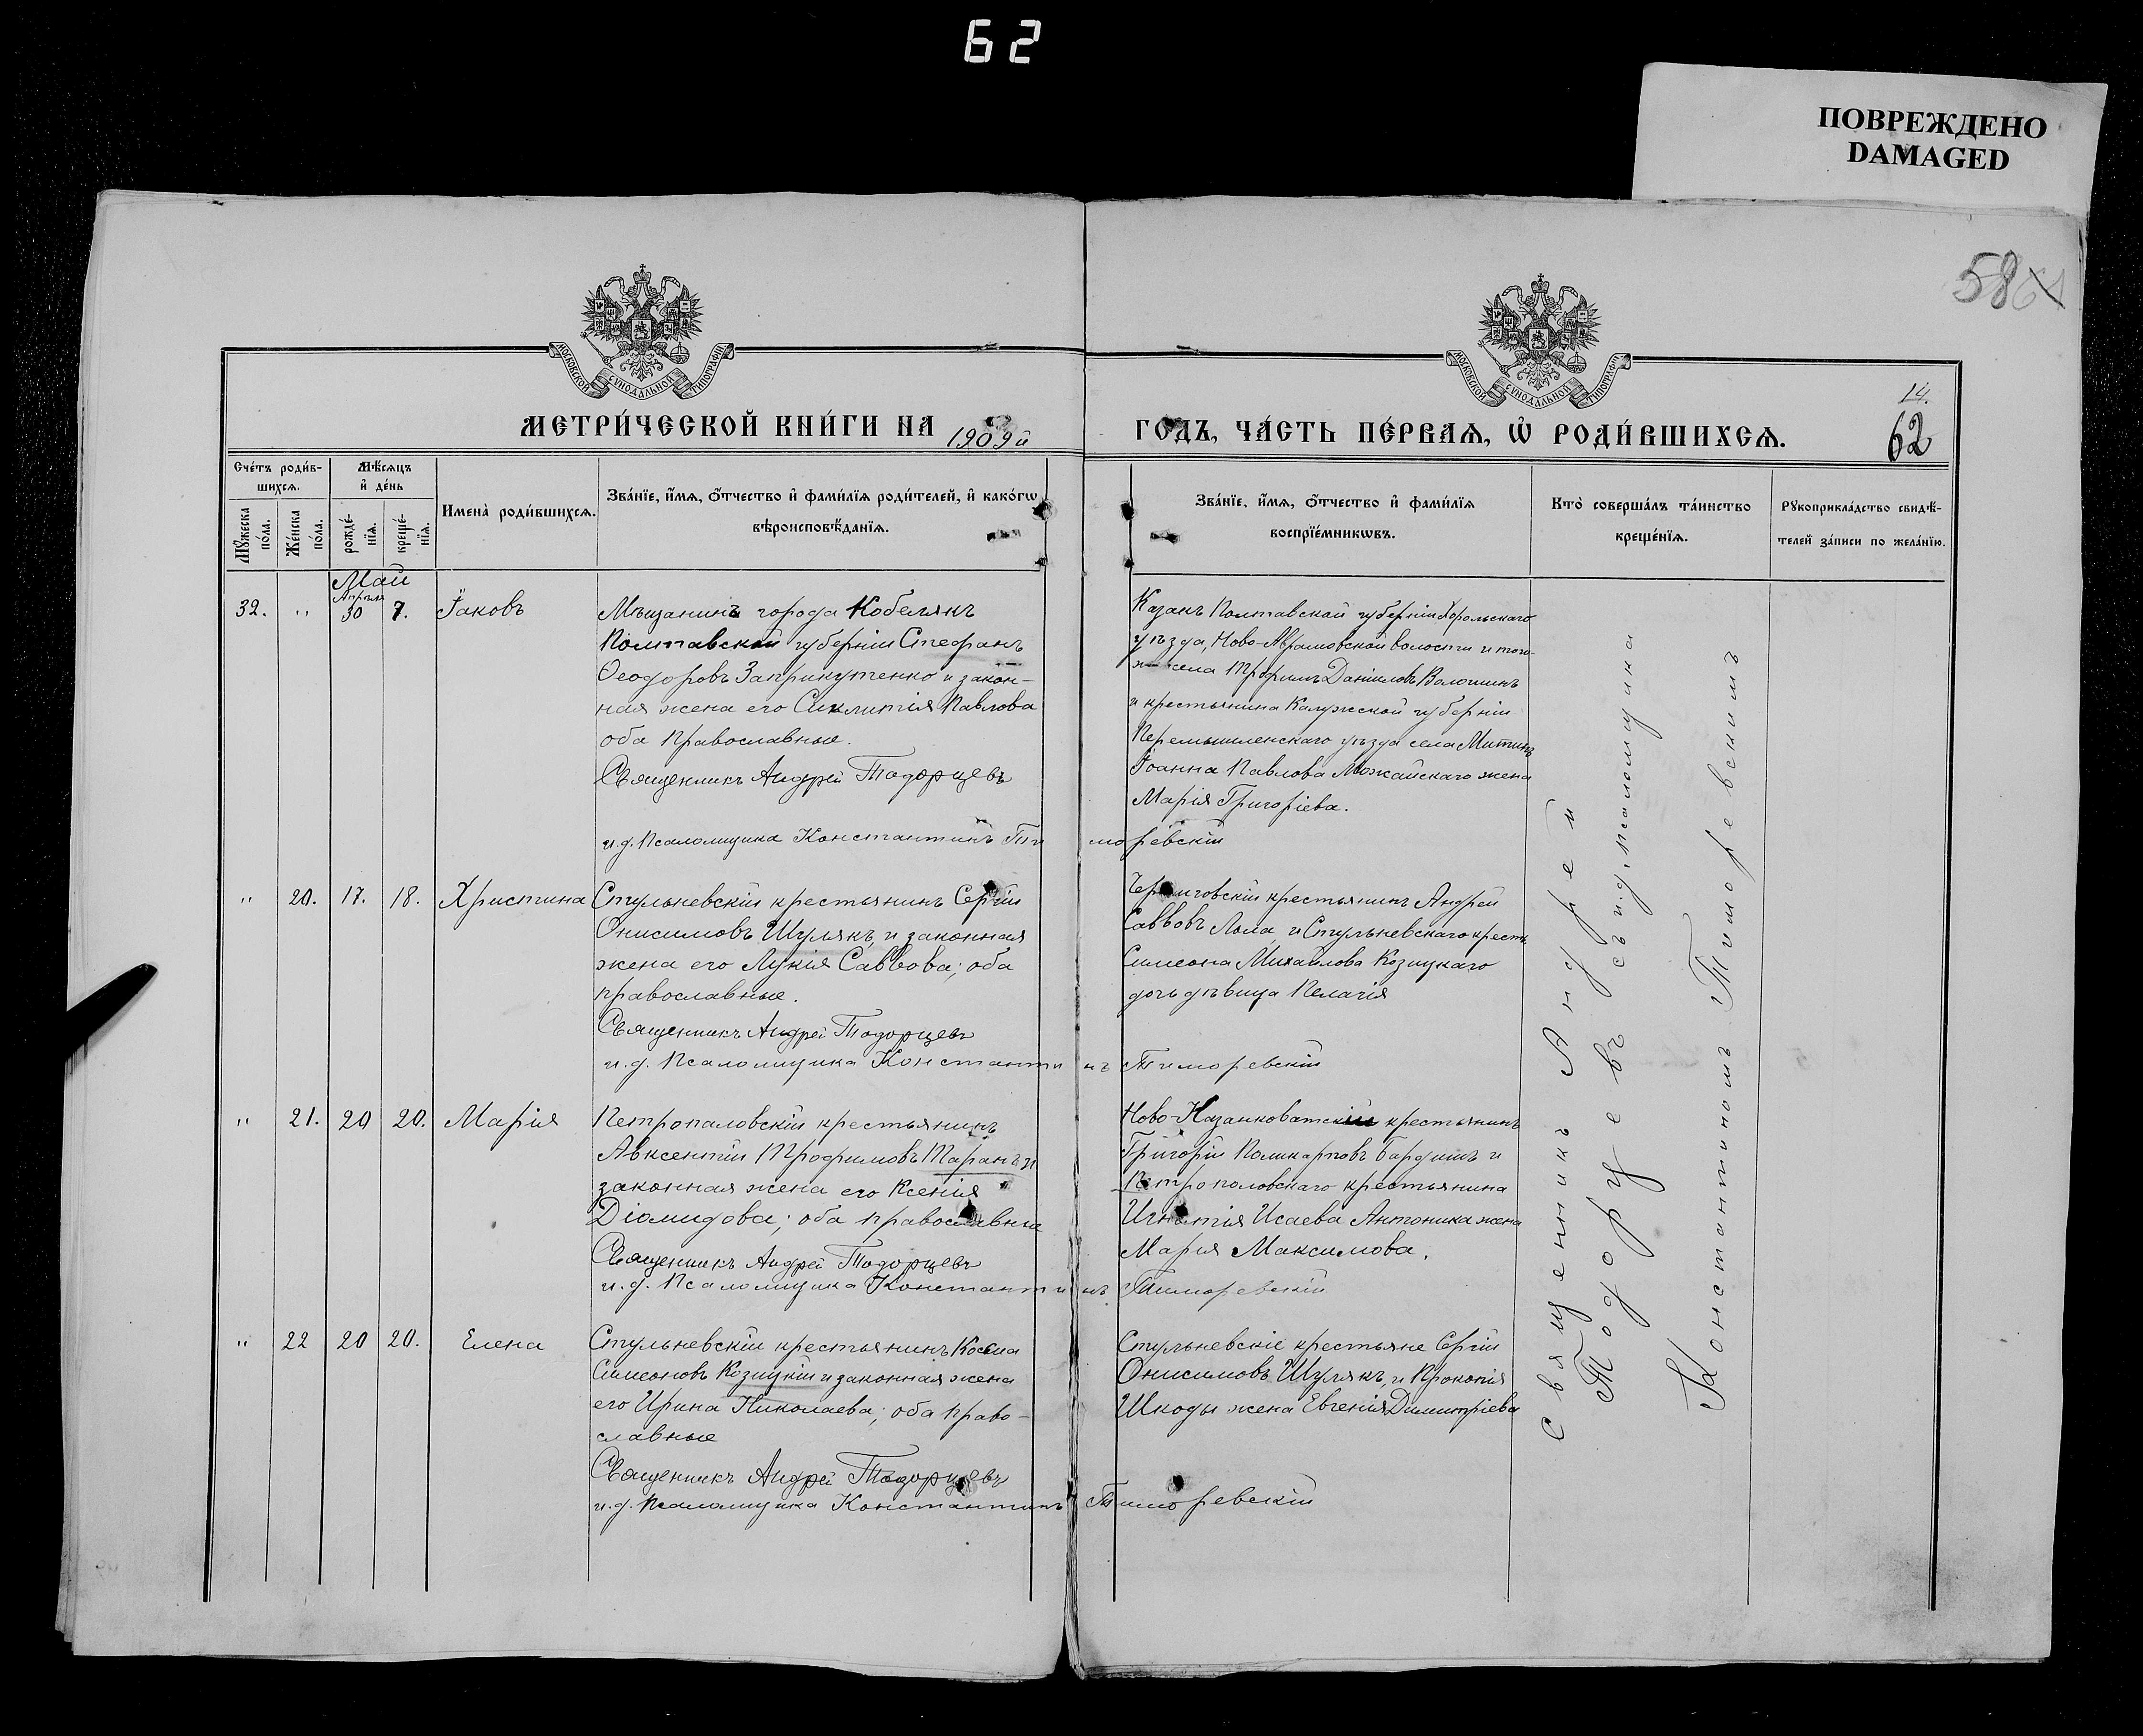 62
ПОВРЕЖДЕНО
DAMAGED
58
МОСКОВСКОЙ СУНОДАЛЬНОЙ ТИПОГРАФІИ
МОСКОВСКОЙ СУНОДАЛЬНОЙ ТИПОГРАФІИ
14.
62
МЕТРИ́ЧЕСКОЙ КНИ́ГИ НА 1909й ГОДЪ, ЧА́СТЬ ПЕ́РВАѦ, Ѽ РОДИ́ВШИХСѦ.
Сче́тъ роди́в-
шихсѧ.
Мꙋ́жеска по́ла.
Же́нска по́ла.
Мѣ́сѧцъ
и҆ де́нь
рожде́-
нїѧ.
креще́-
нїѧ.
Имена̀ роди́вшихсѧ.
Зва́нїе, и҆́мѧ, ѻ҆́тчество и҆ фами́лїѧ роди́телей, и҆ како́гѡ
вѣроисповѣ́данїѧ.
Зва́нїе, и҆́мѧ, ѻ҆́тчество и҆ фами́лїѧ
воспрїе́мникѡвъ.
Кто̀ соверша́лъ та́инство
креще́нїѧ.
Рꙋкоприкла́дство свидѣ́-
телей за́писи по жела́нїю.
Май
Апрѣля
32. " 30 7. Іаковъ
Мѣщанинъ города Кобелякъ
Полтавской губерніи Стефанъ
Ѳеодоровъ Заприкутенко и закон-
ная жена его Сиклитія Павлова
оба православные.
Священникъ Андрей Тодорцевъ
и.д. Псаломщика Константинъ Тиморевскій
Казакъ Полтавской губерніи Хорольскаго
уѣзда, Ново-Аврамовской волости и того-
же села Трофимъ Даніиловъ Волошинъ
и крестьянина Калужской губерніи
Перемышленскаго уѣзда села Митинъ
Іоанна Павлова Можайскаго жена
Марія Григоріева.
" 20. 17. 18. Христина
Стульневскій крестьянинъ Сергій
Онисимовъ Шулякъ, и законная
жена его Лукія Саввова; оба
православные.
Священникъ Андрей Тодорцевъ
и.д. Псаломщика Константинъ Тиморевскій
Черниговскій крестьянинъ Андрей
Саввовъ Лома, и Стульневскаго крест.
Симеона Михаилова Козицкаго
дочь дѣвица Пелагія
" 21. 20 20. Марія
Петропаловскій крестьянинъ
Авксентій Трофимовъ Таранъ и
законная жена его Ксенія
Діомидова; оба православные
Священникъ Андрей Тодорцевъ
и.д. Псаломщика Константинъ Тиморевскій
Ново-Казанковатскій крестьянинъ
Григорій Поликарповъ Бардишъ и
Петрополовскаго крестьянина
Игнатія Исаева Антоника жена
Марія Максимова.
" 22 20 20. Елена
Стульневскій крестьянинъ Косма
Симеоновъ Козицкій и законная жена
его Ирина Николаева; оба право-
славные
Священникъ Андрей Тодорцевъ
и.д. Псаломщика Константинъ Тиморевскій
Стульневскіе крестьяне Сергій
Онисимовъ Шулякъ, и Прокопія
Шкоды жена Евгенія Димитріева
Священникъ Андрей
Тодорцевъ съ и.д. псаломщика
Константиномъ Тиморевскимъ